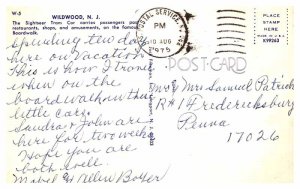 W-5
WILDWOOD, N. J.
The Sightseer Tram Car carries passengers past
restaurants, shops, and amusements, on the famous
Boardwalk.
Spending ten days
here on Vacation
This is how I travel
when on the
boardwalk then
little cars.
Sandra & John are
here for two weeks
Hope you are
both well.
Mabel & Allen Boyer
POSTAL SERVICE
PM
AUG
1975
PLACE
STAMP
HERE
K99363
POST CARD
Mr & Mrs Samuel Patrick
R#1 Fredericksburg
Penna
17026